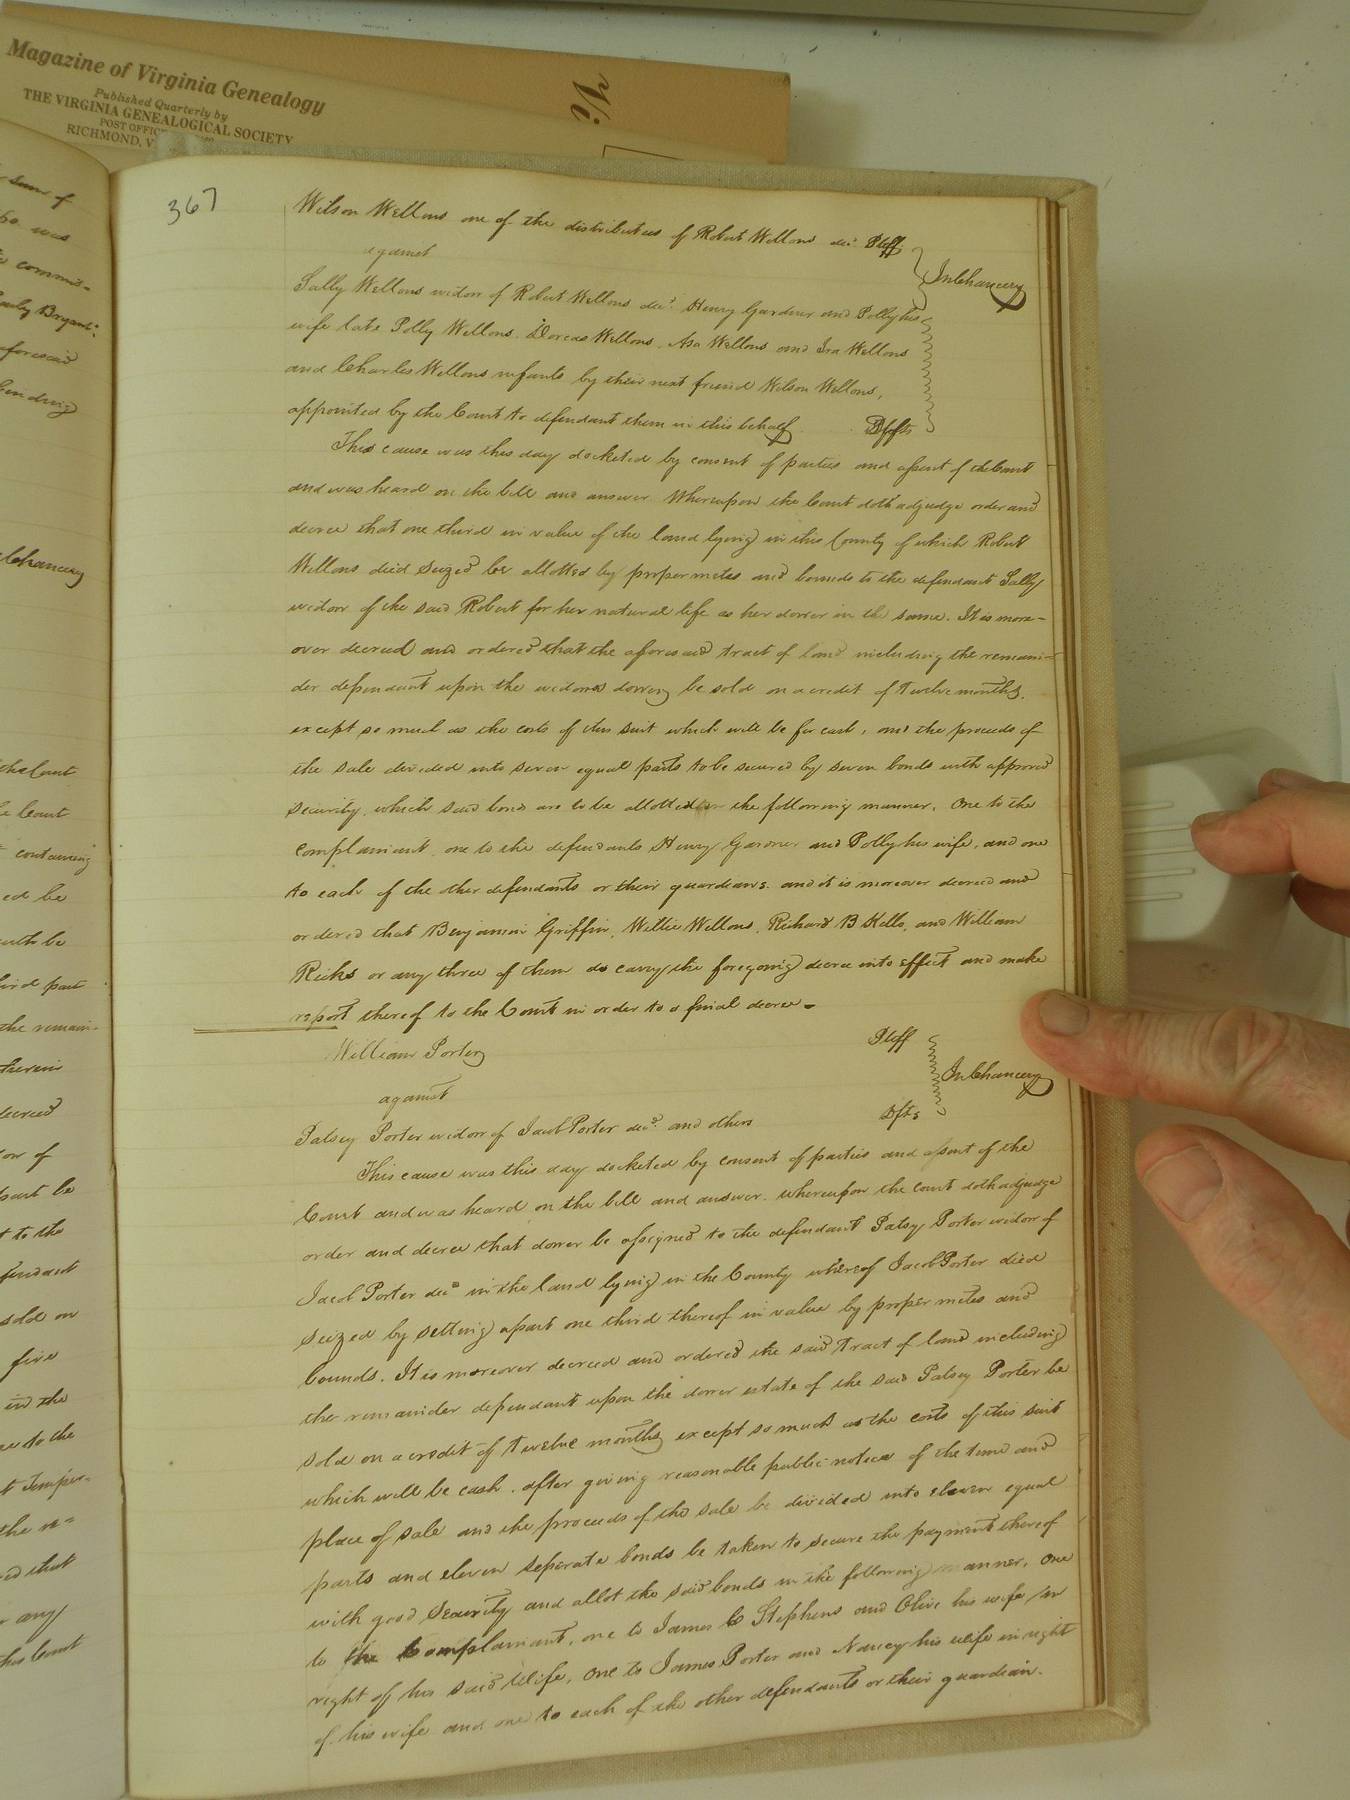 Magazine of Virginia Genealogy
Published Quarterly by
THE VIRGINIA GENEALOGICAL SOCIETY
POST OFFICE
RICHMOND, V
Vi
sum of
was
commit-
Bryant
aforesaid
binding
Chancery
the Court
Court
containing
ed be
be
part
the remain-
therein
decreed
or of
part be
t to the
fendant
sold on
five
in the
to the
the re=
ed that
or any
this Court
367
Wilson Wellons one of the distributees of Robert Wellons decd. Pltff.
against
In Chancery
Sally Wellons widow of Robert Wellons decd. Henry Gardner and Polly his
wife late Polly Wellons. Dorcas Wellons, Asa Wellons and Ira Wellons
and Charles Wellons infants by their next friend Wilson Wellons,
appointed by the Court to defendant them in this behalf. Dfts
This cause was this day docketed by consent of parties and assent of the Court
and was heard on the bill and answer. Whereupon the Court doth adjudge order and
decree that one third in value of the land lying in this County of which Robert
Wellons died seized be allotted by proper metes and bounds to the defendant Sally
widow of the said Robert for her natural life as her dower in the same. It is more-
over decreed and ordered that the aforesaid tract of land including the remain-
der dependant upon the widows dower be sold on a credit of twelve months,
except so much as the costs of this suit which will be for cash, and the proceeds of
the sale devided into seven equal parts to be secured by seven bonds with approved
security, which said bond are to be allotted in the following manner. One to the
complainant, one to the defendants Henry Gardner and Polly his wife, and one
to each of the other defendants or their guardians. and it is moreover decreed and
ordered that Benjamin Griffin, Willie Wellons, Richard B Kello, and William
Ricks or any three of them do carry the foregoing decree into effect and make
report thereof to the Court in order to a final decree.
William Porter Pltff
against In Chancery
Patsey Porter widow of Jacob Porter decd. and others Dfts
This cause was this day docketed by consent of parties and assent of the
Court and was heard on the bill and answer. whereupon the court doth adjudge
order and decree that dower be assigned to the defendant Patsy Porter widow of
Jacob Porter decd in the land lying in the County whereof Jacob Porter died
seized by setting apart one third thereof in value by proper metes and
bounds. It is moreover decreed and ordered the said tract of land including
the remainder dependant upon the dower estate of the said Patsey Porter be
sold on a credit of twelve months except so much as the costs of this suit
which will be cash. after giving reasonable public notice of the time and
place of sale and the proceeds of the sale be divided into eleven equal
parts and eleven seperate bonds be taken to secure the payment thereof
with good security and allot the said bonds in the following manner. One
to the Complainant, one to James C Stephens and Olive his wife in
right of his said Wife, One to James Porter and Nancy his wife in right
of his wife and one to each of the other defendants or their guardian.